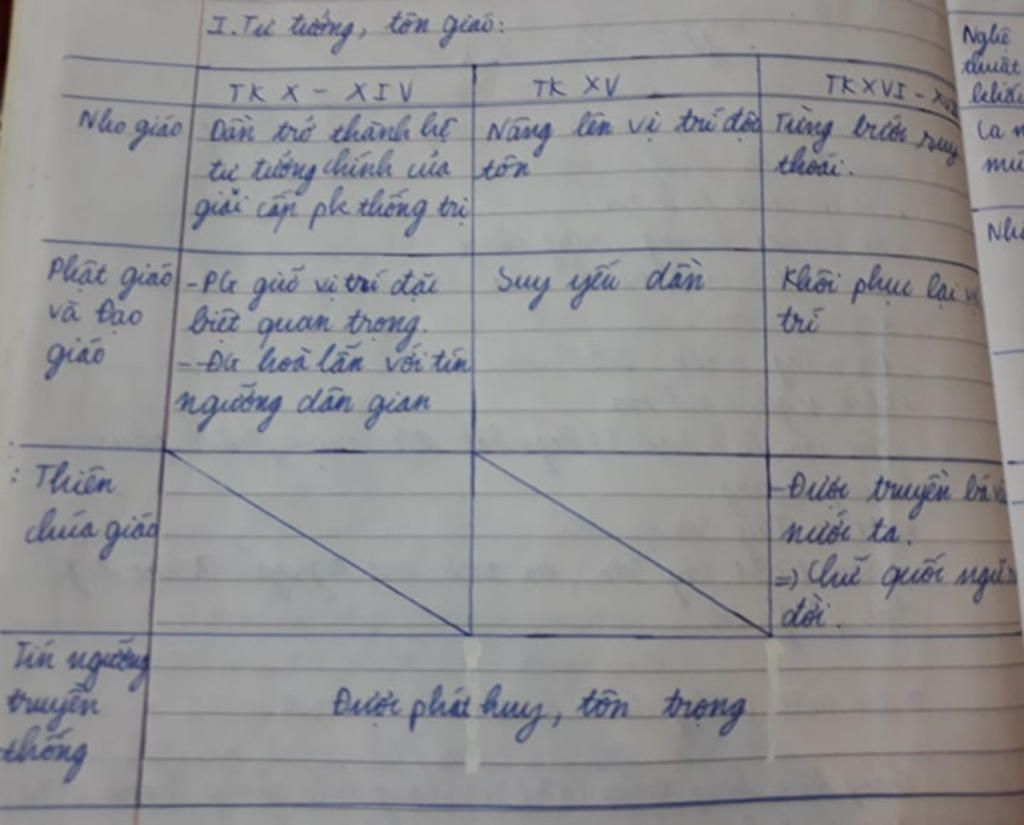 I. Tư tưởng, tôn giáo:
TK X - XIV
TK XV
TK XVI -
Nho giáo
Dần trở thành hệ
tư tưởng chính của
giải cấp pk thống trị
Nâng lên vị trí độc
tôn
Từng bước suy
thoái.
Phật giáo
và Đạo
giáo
- PG giữ vị trí đặc
biệt quan trọng.
- ĐG hoà lẫn với tín
ngưỡng dân gian
Suy yếu dần
Khôi phục lại vị
trí
Thiên
chúa giáo
- Được truyền bá
nước ta.
=> Chữ quốc ngữ
đời.
Tín ngưỡng
truyền
thống
Được phát huy, tôn trọng
Nghệ
thuật